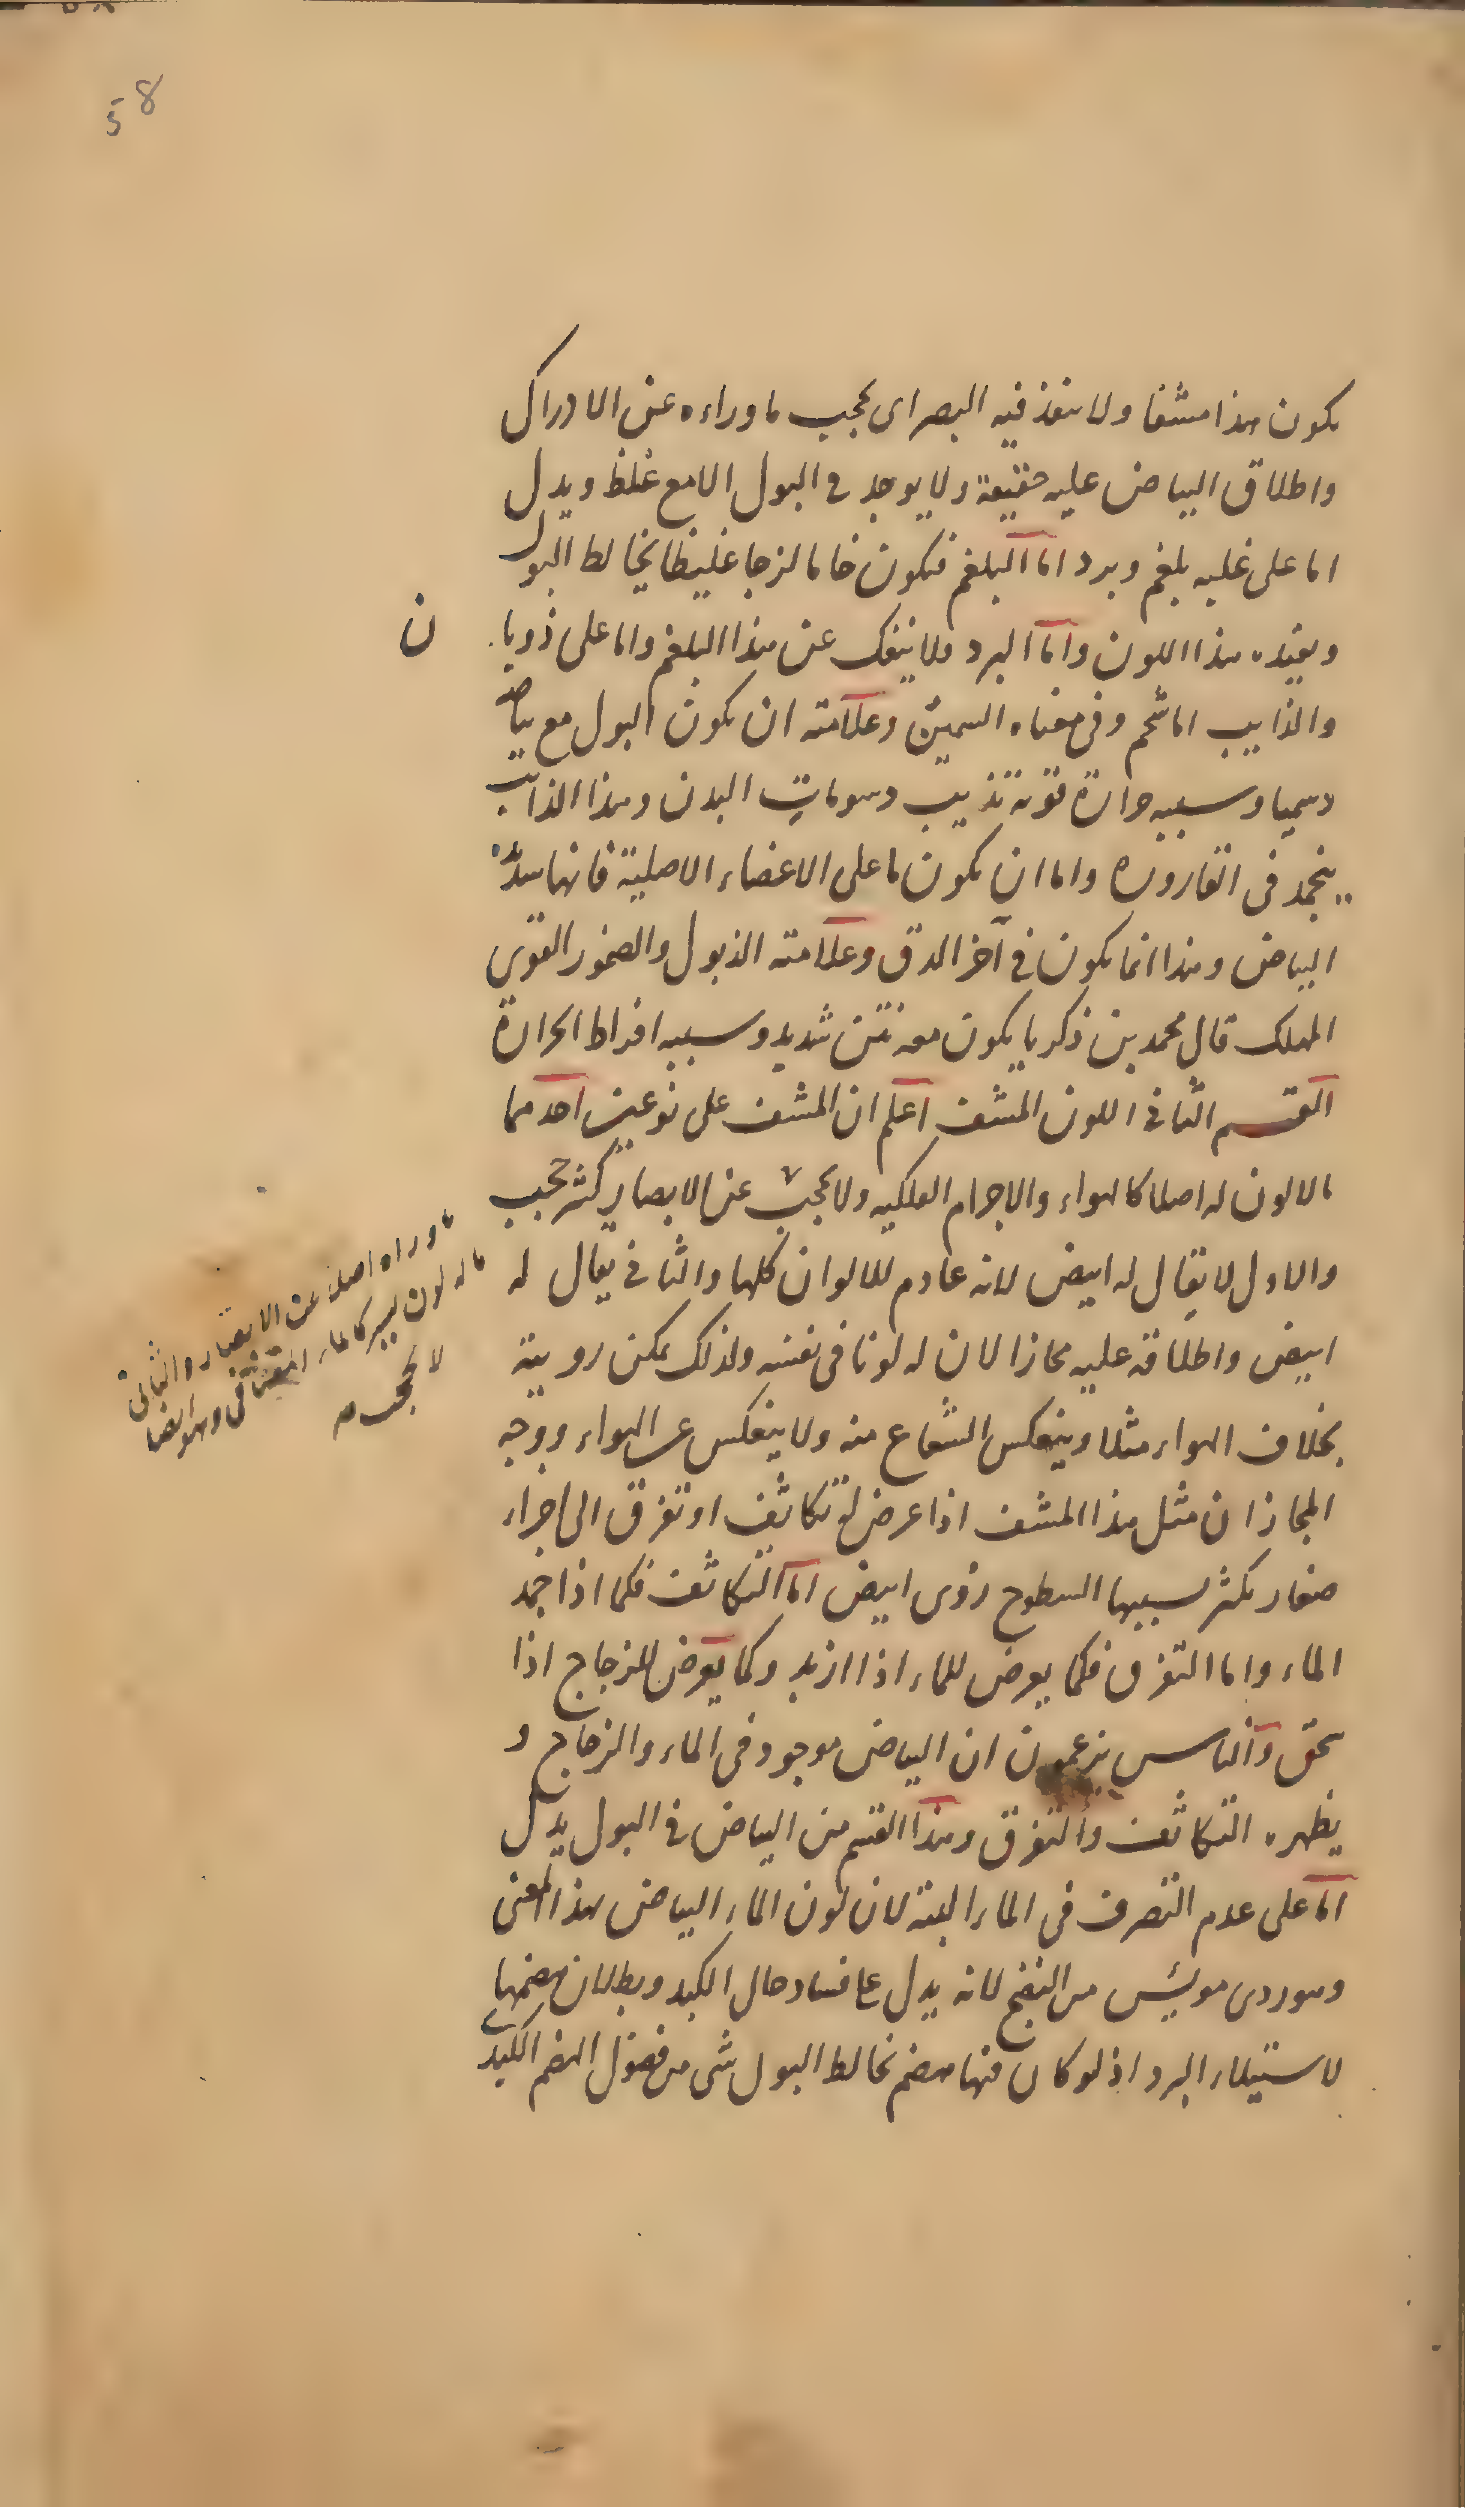 58
يكون هذا مشفا ولا ينفذ فيه البصر اى يحجب ما وراءه عن الادراك
واطلاق البياض عليه حقيقة ولا يوجد فى البول الا مع غلظ ويدل
اما على غلبه بلغم وبرد اما البلغم فيكون خاما لزجا غليظا يخالط البول
ويفيده هذا اللون واما البرد فلا ينفك عن هذا البلغم واما على ذوبا
ن
والذايب اما شحم وفى معناه السمين وعلامته ان يكون البول مع بياضه
دسميا وسببه حرارة قوية تذيب دسومات البدن وهذا الذائب
ينجمد فى القارورة واما ان يكون ما على الاعضاء الاصلية فانها شديدة
البياض وهذا انما يكون فى آخر الدق وعلامته الذبول والضمور القوى
المهلك قال محمد بن زكريا يكون معه نتن شديد وسببه افراط الحرارة
القسم الثانى اللون المشف اعلم ان المشف على نوعين احدهما
ما لا لون له اصلا كالهواء والاجرام الفلكيه ولا يحجب عن الابصار كثر حجب
ما وراه اصلا عن الابصار والثانى
ما له لون يسير كالماء الصافى وهو ايضا
لا يحجب م
والاول لا يقال له ابيض لانه عادم للالوان كلها والثانى يقال له
ابيض واطلاقه عليه مجازا لان له لونا فى نفسه ولذلك يمكن رويته
بخلاف الهواء مثلا وينعكس الشعاع منه ولا ينعكس عن الهواء ووجه
المجاز ان مثل هذا المشف اذا عرض له تكاثف او تفرق الى اجزاء
صغار يكثر بسببها السطوح رؤى ابيض اما التكاثف فكما اذا جمد
الماء واما التفرق فكما يعرض للماء اذا ازبد وكما يعرض للزجاج اذا
سحق والناس يزعمون ان البياض موجود فى الماء والزجاج و
يظهره التكاثف والتفرق وهذا القسم من البياض فى البول يدل
اما على عدم التصرف فى الماء البتة لان لون الماء البياض بهذا المعنى
وهو ردى مويس من النضج لانه يدل على فساد حال الكبد وبطلان هضمها
لاستيلاء البرد اذ لو كان فيها هضم لخالط البول شى من فضول الهضم الكبدى